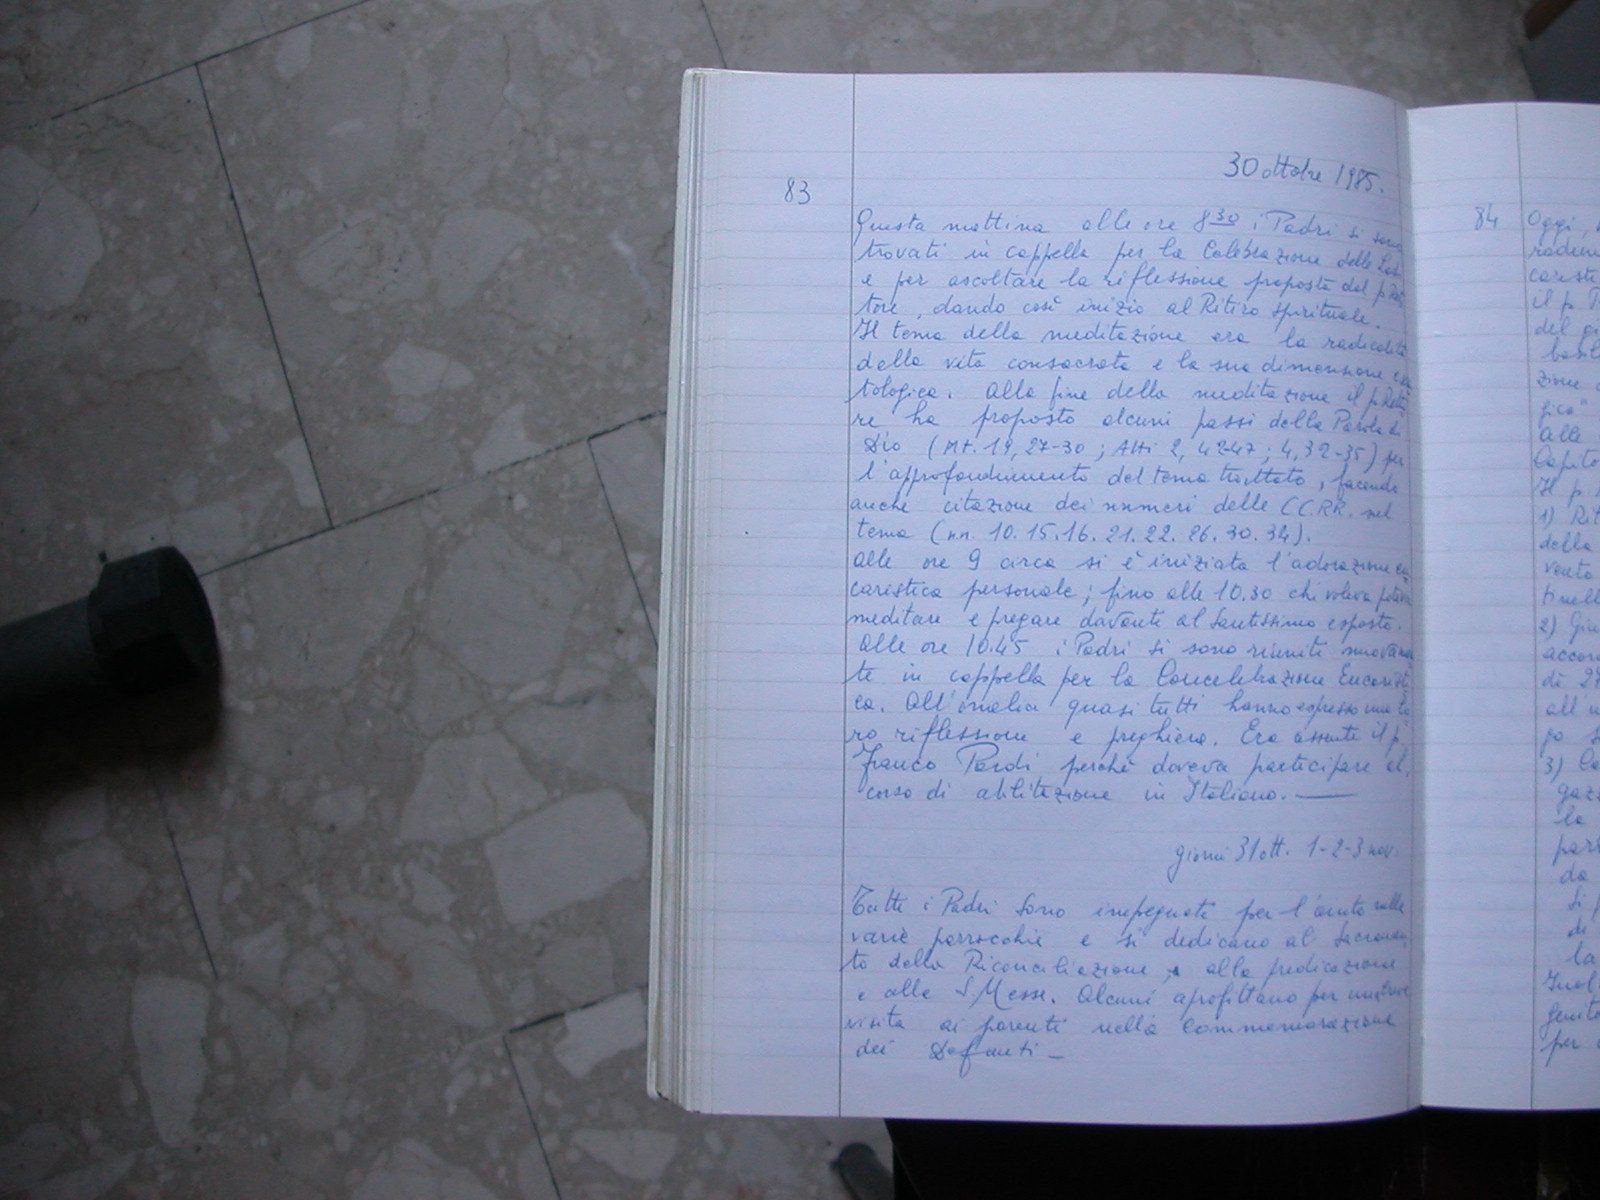 30 ottobre 1985.
83
Questa mattina alle ore 8 30 i Padri si sono
trovati in cappella per la Celebrazione delle Lodi
e per ascoltare la riflessione proposta dal p. Ret
tore, dando così inizio al Ritiro spirituale.
Il tema della meditazione era la radicalità
della vita consacrata e la sua dimensione esca
tologica. Alla fine della meditazione il p. Retto
re ha proposto alcuni passi della Parola di
Dio (Mt. 19, 27-30; Atti 2, 42-47; 4, 32-35) per
l'approfondimento del tema trattato, facendo
anche citazione dei numeri delle CC.RR. sul
tema (nn. 10. 15. 16. 21. 22. 26. 30. 34).
Alle ore 9 circa si è iniziata l'adorazione eu
caristica personale; fino alle 10.30 chi voleva poteva
meditare e pregare davanti al Santissimo esposto.
Alle ore 10.45 i Padri si sono riuniti nuovamen
te in cappella per la Concelebrazione Eucaristi
ca. All'omelia quasi tutti hanno espresso una lo
ro riflessione e preghiera. Era assente il p.
Franco Pardi perchè doveva partecipare al
corso di abilitazione in Italiano.
giorni 31 ott. 1-2-3 nov.
Tutti i Padri sono impegnati per l'aiuto nelle
varie parrocchie e si dedicano al Sacramen
to della Riconciliazione, alla predicazione
e alle S Messe. Alcuni aprofittano per una
visita ai parenti nella Commemorazione
dei Defunti -
84
Oggi,
il p.
del
Alle
Capito
Il p.
1)
della
2)
di 27
3)
la
da
di
la
per